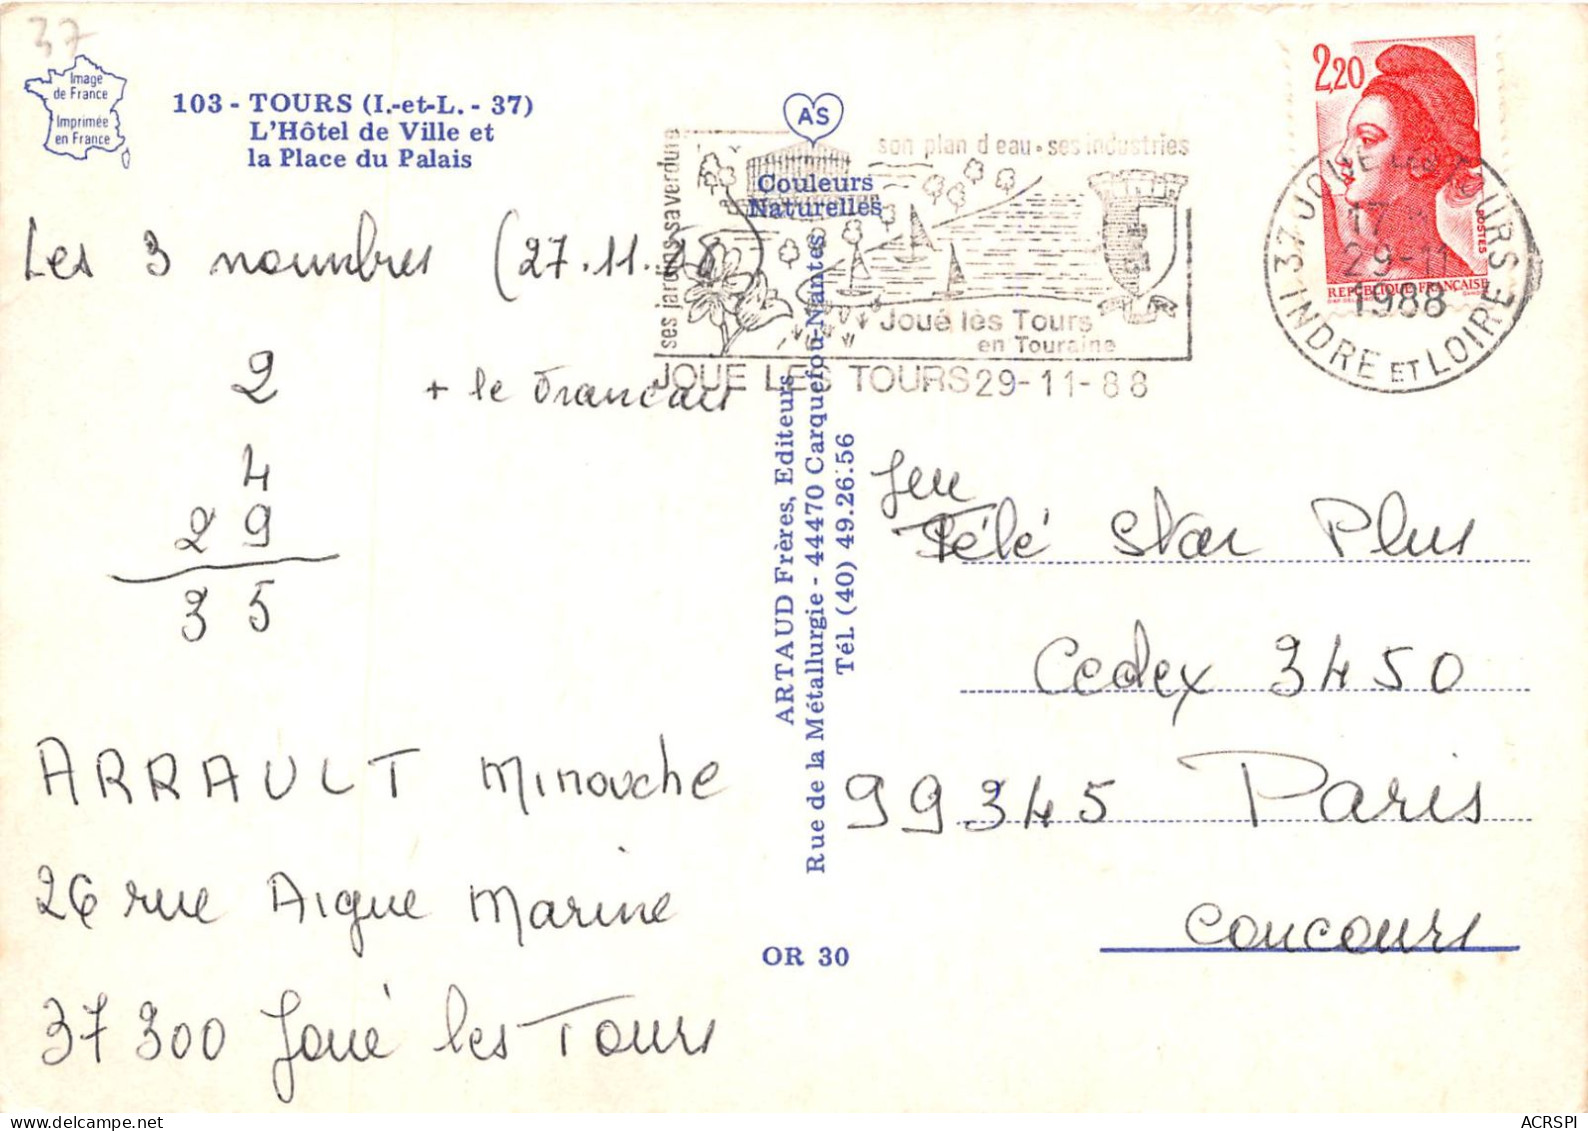 37
Image
de France
Imprimée
en France
103 - TOURS (I.-et-L. - 37)
L'Hôtel de Ville et
la Place du Palais
AS
Couleurs
Naturelles
2,20
POSTES
REPUBLIQUE FRANÇAISE
37 JOUE LES TOURS
17
29-11
1988
INDRE ET LOIRE
son plan d eau • ses industries
ses jardins sa verdure
Joué lès Tours
en Touraine
JOUE LES TOURS 29-11-88
Les 3 noumbres (27.11.88)
2 + le Francais
4
29
35
ARRAULT Minouche
26 rue Aigue Marine
37300 Joué les Tours
ARTAUD Frères, Editeurs
Rue de la Métallurgie - 44470 Carquefou-Nantes
Tél. (40) 49.26.56
OR 30
Jeu
Télé Star Plus
Cedex 3450
99345 Paris
concours
ACRSPI